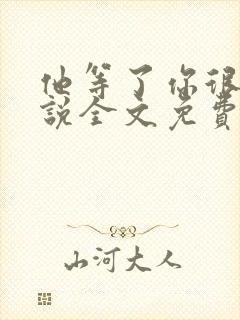 他等了你很
说全文免費
山河大人